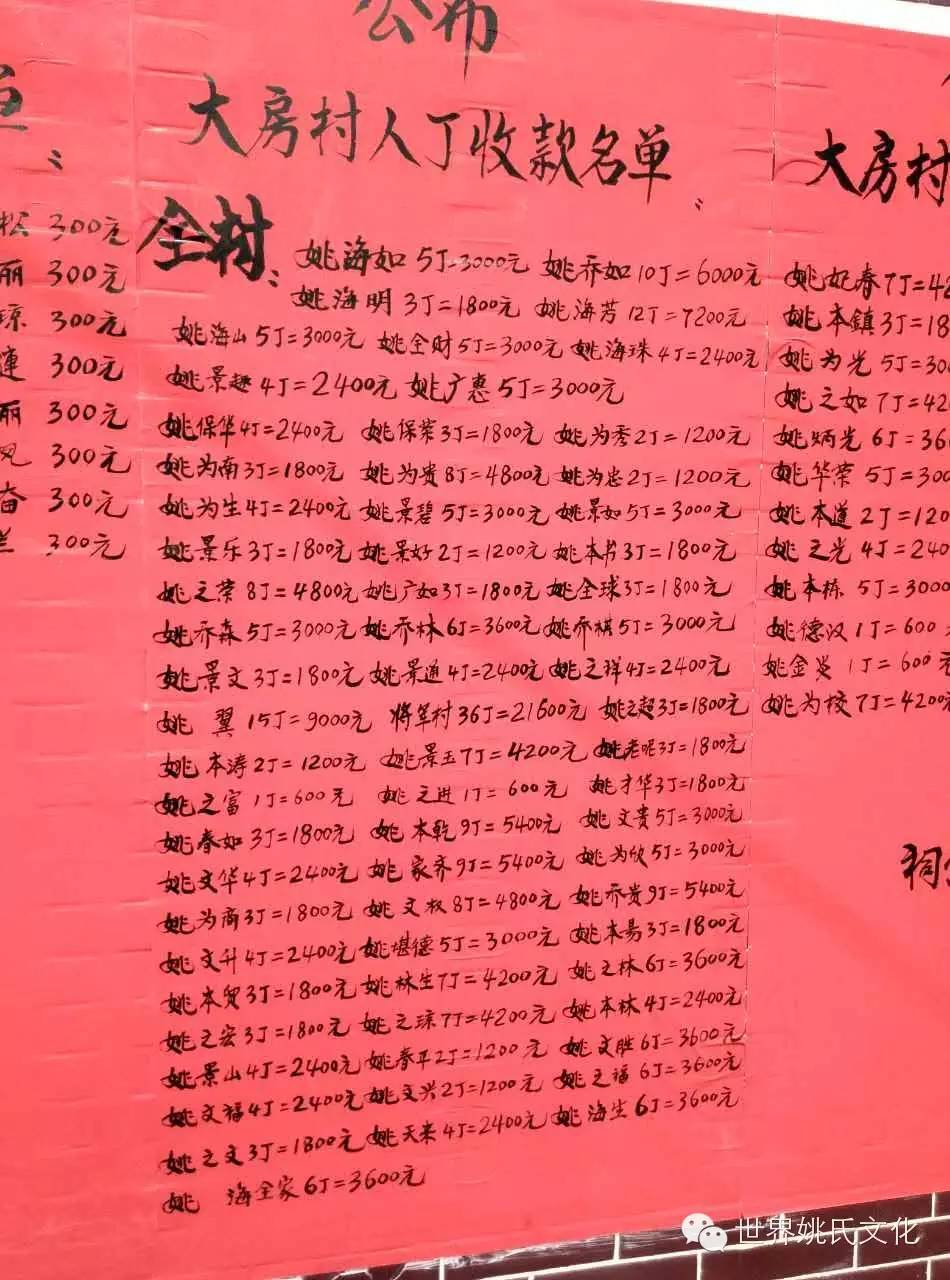 公布
大房村人丁收款名单
全村:
姚海如 5丁=3000元 姚乔如 10丁=6000元
姚海明 3丁=1800元 姚海芳 12丁=7200元
姚海山 5丁=3000元 姚全财 5丁=3000元 姚海珠 4丁=2400元
姚景趣 4丁=2400元 姚广惠 5丁=3000元
姚保华 4丁=2400元 姚保荣 3丁=1800元 姚为秀 2丁=1200元
姚为南 3丁=1800元 姚为贵 8丁=4800元 姚为忠 2丁=1200元
姚为生 4丁=2400元 姚景碧 5丁=3000元 姚景如 5丁=3000元
姚景乐 3丁=1800元 姚景好 2丁=1200元 姚本片 3丁=1800元
姚之荣 8丁=4800元 姚广如 3丁=1800元 姚全球 3丁=1800元
姚乔森 5丁=3000元 姚乔林 6丁=3600元 姚乔棋 5丁=3000元
姚景文 3丁=1800元 姚景通 4丁=2400元 姚之祥 4丁=2400元
姚翼 15丁=9000元 将军村 36丁=21600元 姚之超 3丁=1800元
姚本涛 2丁=1200元 姚景玉 7丁=4200元 姚老呢 3丁=1800元
姚之富 1丁=600元 姚之进 1丁=600元 姚才华 3丁=1800元
姚春如 3丁=1800元 姚本乾 9丁=5400元 姚文贵 5丁=3000元
姚文华 4丁=2400元 姚家齐 9丁=5400元 姚为欣 5丁=3000元
姚为商 3丁=1800元 姚文权 8丁=4800元 姚乔贵 9丁=5400元
姚文升 4丁=2400元 姚堪德 5丁=3000元 姚本易 3丁=1800元
姚本贸 3丁=1800元 姚林生 7丁=4200元 姚之林 6丁=3600元
姚之宏 3丁=1800元 姚之琼 7丁=4200元 姚本林 4丁=2400元
姚景山 4丁=2400元 姚春平 2丁=1200元 姚文胜 6丁=3600元
姚文福 4丁=2400元 姚文兴 2丁=1200元 姚之福 6丁=3600元
姚之文 3丁=1800元 姚天来 4丁=2400元 姚海生 6丁=3600元
姚海全家 6丁=3600元
松 300元
丽 300元
琼 300元
莲 300元
丽 300元
凤 300元
奋 300元
兰 300元
大房村
姚妃春 7丁=42
姚本镇 3丁=18
姚为光 5丁=300
姚之如 7丁=42
姚炳光 6丁=36
姚华荣 5丁=300
姚本道 2丁=120
姚之光 4丁=240
姚本栋 5丁=3000
姚德汉 1丁=600
姚金炎 1丁=600元
姚为校 7丁=4200元
祠
世界姚氏文化